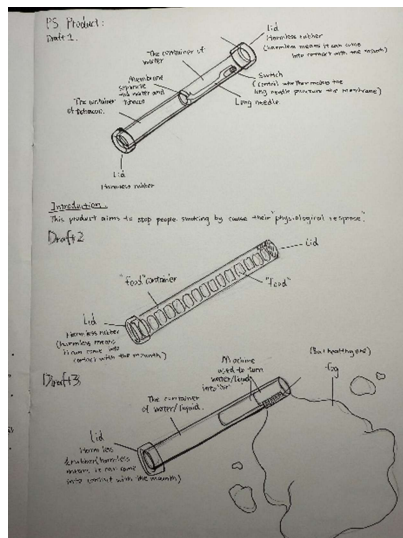 PS Product:
Draft 1.
Lid
Harmless rubber
(harmless means it can come
into contact with the mouth)
The container of
water
Switch
(control whether means the
long needle puncture the membrane)
Long needle
Membrane
separate
water and
tobacco
The container
of tobacco.
Lid
Harmless rubber
Introduction.
This product aims to stop people smoking by cause their "physiological response".
Draft 2
Lid
"Food" container
"Food"
Lid
Harmless rubber
(harmless means
it can come into
contact with the mouth)
Draft 3
Machine
used to turn
water/liquid
into air
(But healthy one)
fog
The container
of water/liquid.
Lid
Harmless
rubber (harmless
means it can come
into contact with the mouth)